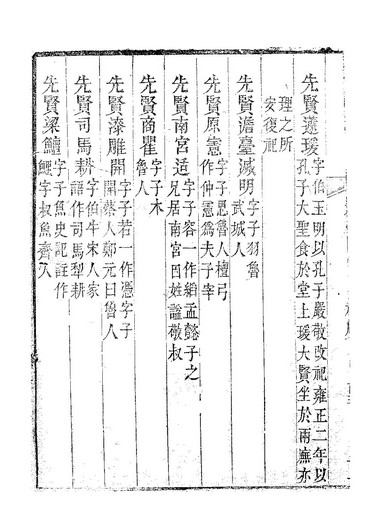 先賢蘧瑗字伯玉明以孔子嚴敬改祀雍正二年以
孔子大聖食於堂上瑗大賢坐於兩廡亦
理之所
安復祀
先賢澹臺滅明字子羽魯
武城人
先賢原憲字子思魯人檀弓
作仲憲為夫子宰
先賢南宮适字子容一作縚孟懿子之
兄居南宮因姓謚敬叔
先賢商瞿字子木
魯人
先賢漆雕開字子若一作憑字子
開蔡人鄭元曰魯人
先賢司馬耕字伯牛宋人家
語作司馬犁耕
先賢梁鱣字子魚史記註作
鯉字叔魚齊人